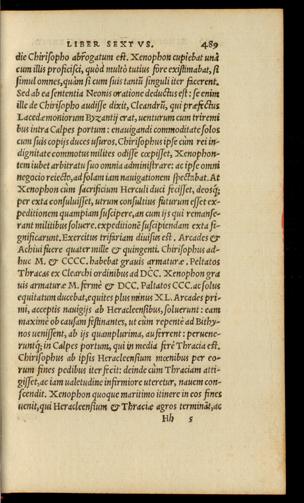 LIBER SEXTVS. 489
die Chirisopho abrogatum est. Xenophon cupiebat unà
cum illis proficisci, quòd multò tutius fore existimabat, si
simul omnes, quàm si cum suis tantùm singuli iter facerent.
Sed ab ea sententia Neonis oratione deductus est: se enim
ille de Chirisopho audisse dixit, Cleandrū, qui præfectus
Lacedæmoniorum Byzantij erat, uenturum cum triremi
bus intra Calpes portum: enauigandi commoditate solos
cum suis copijs duces usuros, Chirisophus ipse cùm rei in-
dignitate commotus milites odisse cœpisset, Xenophon-
tem iubet arbitratu suo omnia administrare: ac ipse omni
negocio reiecto, ad solam iam nauigationem spectabat. At
Xenophon cùm sacrificium Herculi duci fecisset, deosq;
per exta consuluisset, utrum consultius futurum esset ex-
peditionem quampiam suscipere, an cum ijs qui remanse-
rant militibus soluere. expeditionē suscipiendam exta si-
gnificarunt. Exercitus trifariam diuisus est. Arcades &
Achiui fuere quater mille & quingenti. Chirisophus ad-
huc M. & CCCC. habebat grauis armaturæ. Peltatos
Thracas ex Clearchi ordinibus ad DCC. Xenophon gra
uis armaturæ M. fermè & DCC. Paltatos CCC. ac solus
equitatum ducebat, equites plus minus XL. Arcades pri-
mi, acceptis nauigijs ab Heracleensibus, soluerunt: eam
maximè ob causam festinantes, ut cùm repentè ad Bithy-
nos uenissent, ab ijs quamplurima, auferrent: peruene-
runtq; in Calpes portum, qui in media ferè Thracia est.
Chirisophus ab ipsis Heracleensium mœnibus per eo-
rum fines pedibus iter fecit: deinde cùm Thraciam atti-
gisset, ac iam ualetudine infirmiore uteretur, nauem con-
scendit. Xenophon quoque maritimo itinere in eos fines
uenit, qui Heracleensium & Thraciæ agros termināt, ac
Hh 5